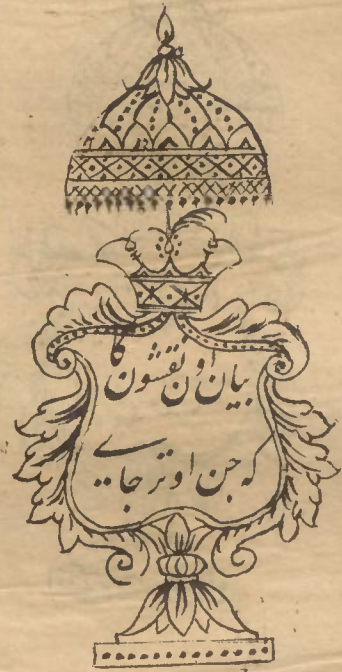 بیان اون نقشون کا
کہ جن اوتر جاے